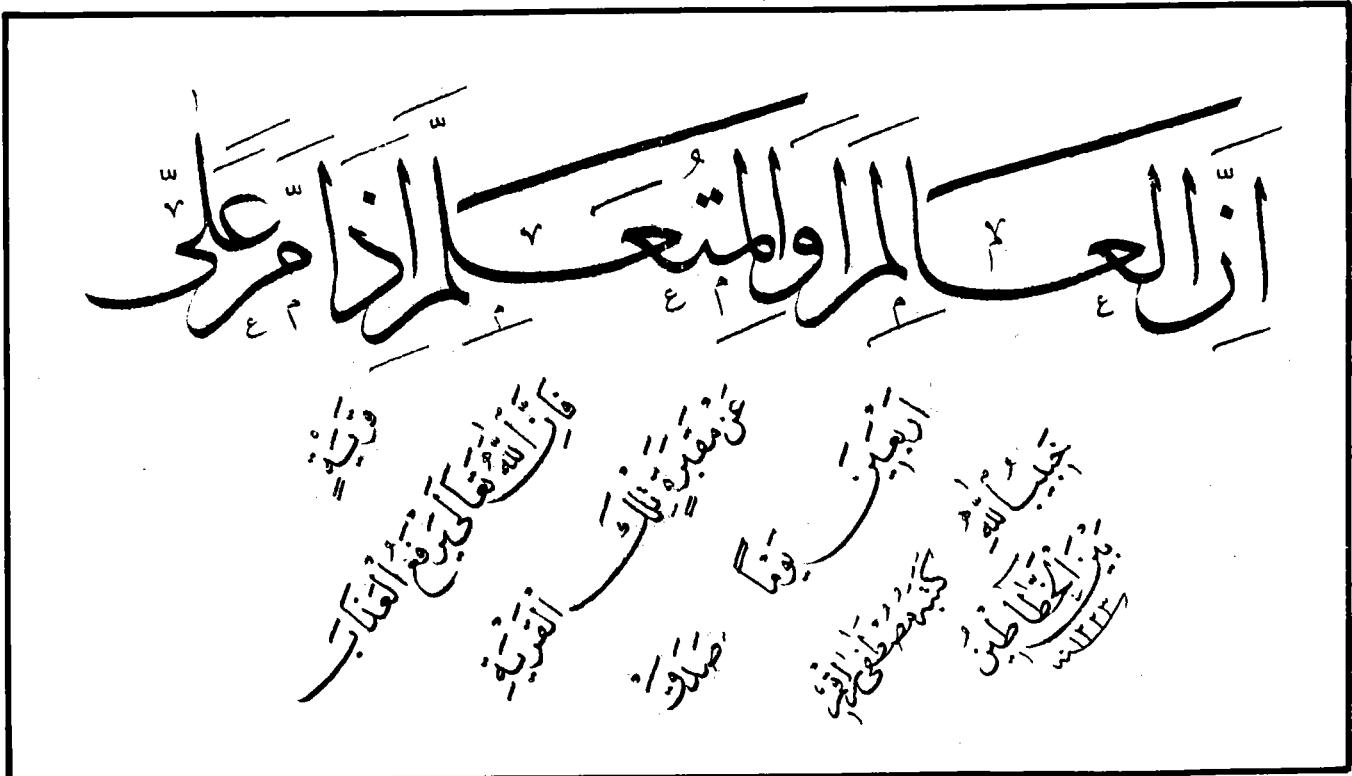 اِنَّ العالم او المتعلم اذا مرّ علىّ
قرية
فاِنّ الله تعالى يرفع العذاب
عن مقبرة تلك
القرية
اربعين
يوماً
صدق
حبيب الله
كتبه مصطفى الراقم
بين الخطاطين
سنة ١٢٢٣